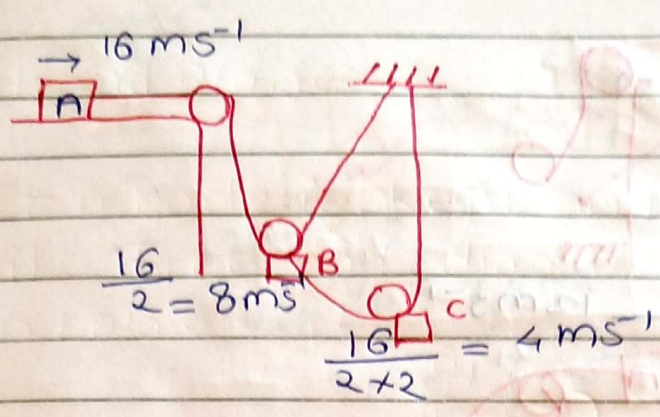 → 16 ms⁻¹
A
B
16/2 = 8ms⁻¹
C
16/2×2 = 4 ms⁻¹